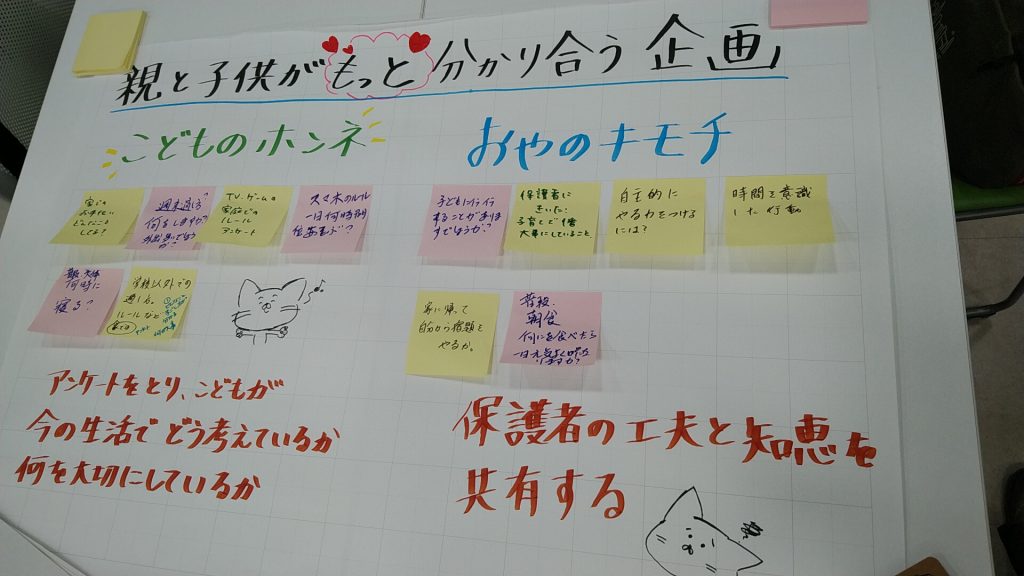 親と子供がもっと分かり合う企画
こどものホンネ
おやのキモチ
家での
お手伝い
どんなことを
してる?
週末過ごす?
何をしますか?
TV、ゲームの
家庭での
ルール
アンケート
スマホのルール
一日何時間
子どもにイライラ
することがありま
すでしょうか?
保護者に
ききたい、
子育てで一番
大事にしていること
自主的に
やる力をつける
には?
時間を意識
した行動
大体
何時に
寝る?
学校以外での
過ごし方
ルールなど
家に帰って
自分から宿題を
やるか。
普段、
朝食
何にを食べたら
アンケートをとり、こどもが
今の生活でどう考えているか
何を大切にしているか
保護者の工夫と知恵を
共有する